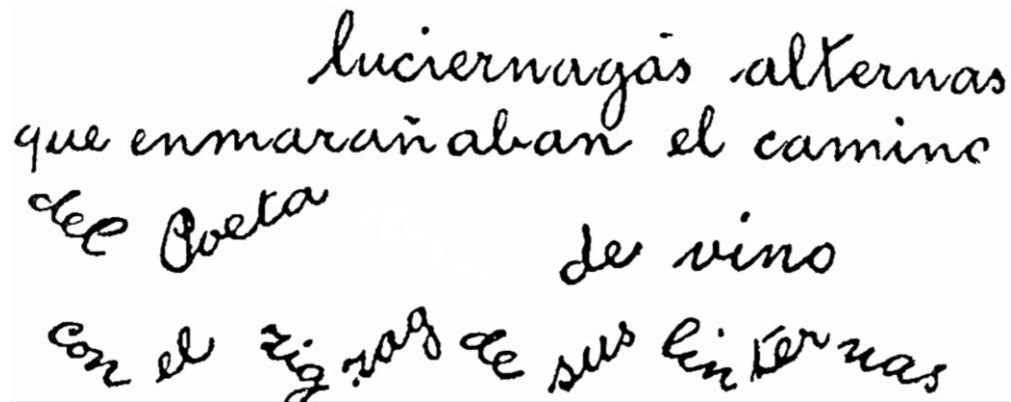 luciernagas alternas
que enmarañaban el camino
del Poeta de vino
con el zig zag de sus linternas